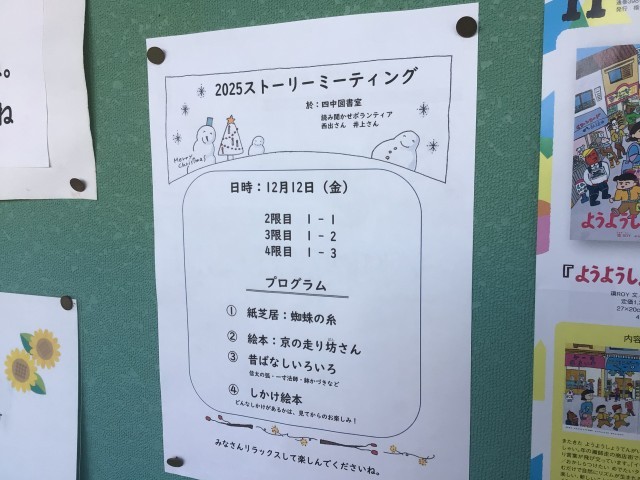 2025ストーリーミーティング
於：四中図書室
読み聞かせボランティア
西出さん 井上さん
Merry
Christmas!
日時：12月12日（金）
2限目 1－1
3限目 1－2
4限目 1－3
プログラム
① 紙芝居：蜘蛛の糸
② 絵本：京の走り坊さん
③ 昔ばなしいろいろ
信太の狐・一寸法師・鉢かづきなど
④ しかけ絵本
どんなしかけがあるかは、見てからのお楽しみ！
みなさんリラックスして楽しんでくださいね。
。
ね
ようようしょ
『ようようし
定価1,
27×20c
内容